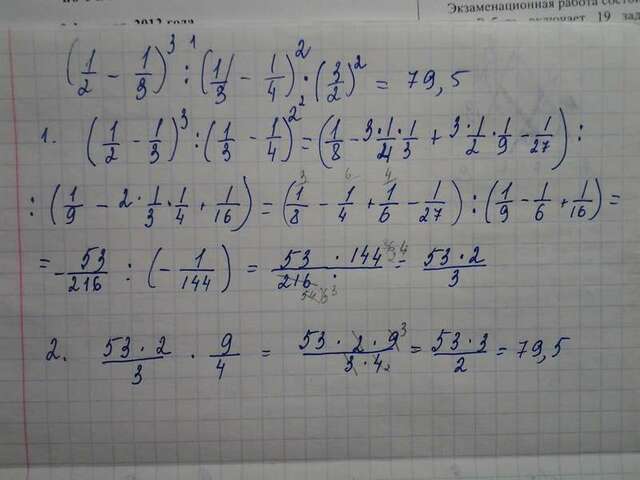 Экзаменационная работа состои
2012 года
включает 19 зад
(1/2 - 1/3)³ :¹ (1/3 - 1/4)² · (3/2)² = 79,5
1. (1/2 - 1/3)³ : (1/3 - 1/4)²² = (1/8 - 3·1/4·1/3 + 3·1/2·1/9 - 1/27) :
: (1/9 - 2·1/3·1/4 + 1/16) = (1/8 - 1/4 + 1/6 - 1/27) : (1/9 - 1/6 + 1/16) =
= -53/216 : (-1/144) = 53·144/216 = 53·2/3
2. 53·2/3 · 9/4 = 53·2·9/3·4 = 53·3/2 = 79,5